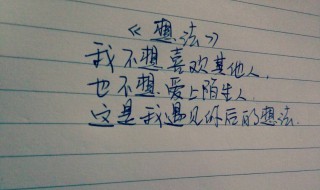 《想法》
我不想喜欢其他人.
也不想.爱上陌生人.
这是我遇见你后的想法.